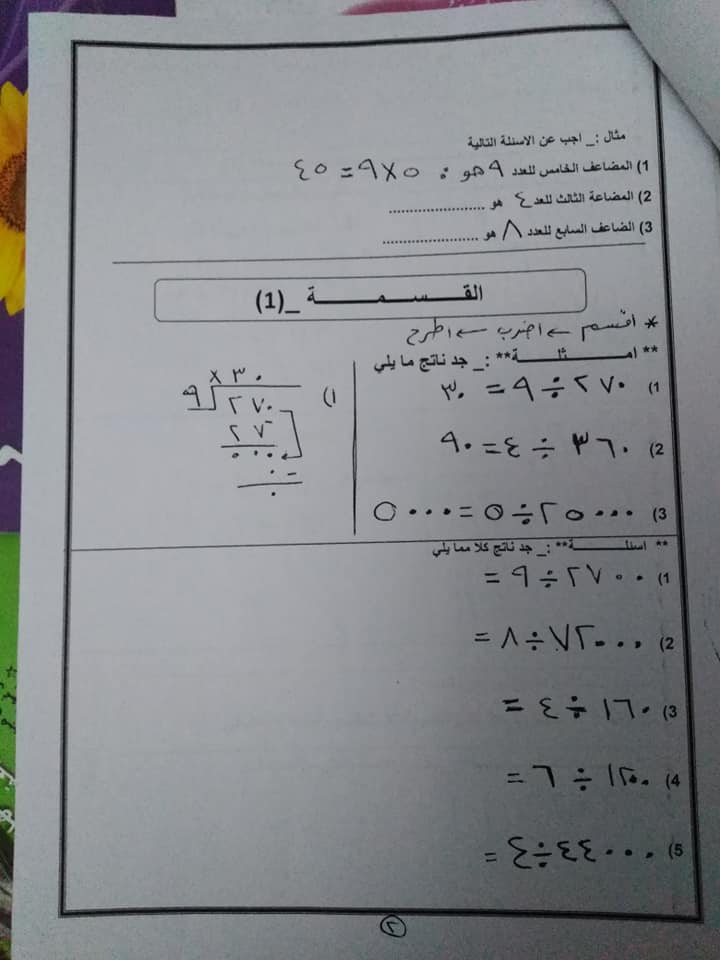 مثال :_ اجب عن الاسئلة التالية
1) المضاعف الخامس للعدد ٩ هو : ٥ × ٩ = ٤٥
2) المضاعة الثالث للعد ٤ هو ......................
3) الضاعف السابع للعدد ٨ هو ......................
القـــسـمـــــــة _(1)
* اقسم ← اضرب ← اطرح
** امـــثلـــــــة** :_ جد ناتج ما يلي
1) ٢٧٠ ÷ ٩ = ٣٠
2) ٣٦٠ ÷ ٤ = ٩٠
3) ٢٥٠٠٠ ÷ ٥ = ٥٠٠٠
1)
× ٣٠
٩ ٢٧٠
٢٧ -
٠٠٠
٠ -
٠
** اسئلـــــــة** :_ جد ناتج كلا مما يلي
1) ٢٧٠٠ ÷ ٩ =
2) ٧٢٠٠٠ ÷ ٨ =
3) ١٦٠ ÷ ٤ =
4) ١٢٠٠ ÷ ٦ =
5) ٤٤٠٠٠ ÷ ٤ =
٢